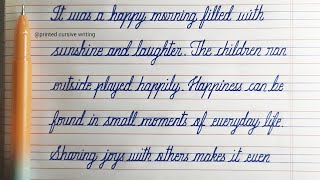 It was a happy morning filled with
@printed cursive writing
sunshine and laughter. The children ran
outside played happily. Happiness can be
found in small moments of everyday life.
Sharing joys with others makes it even